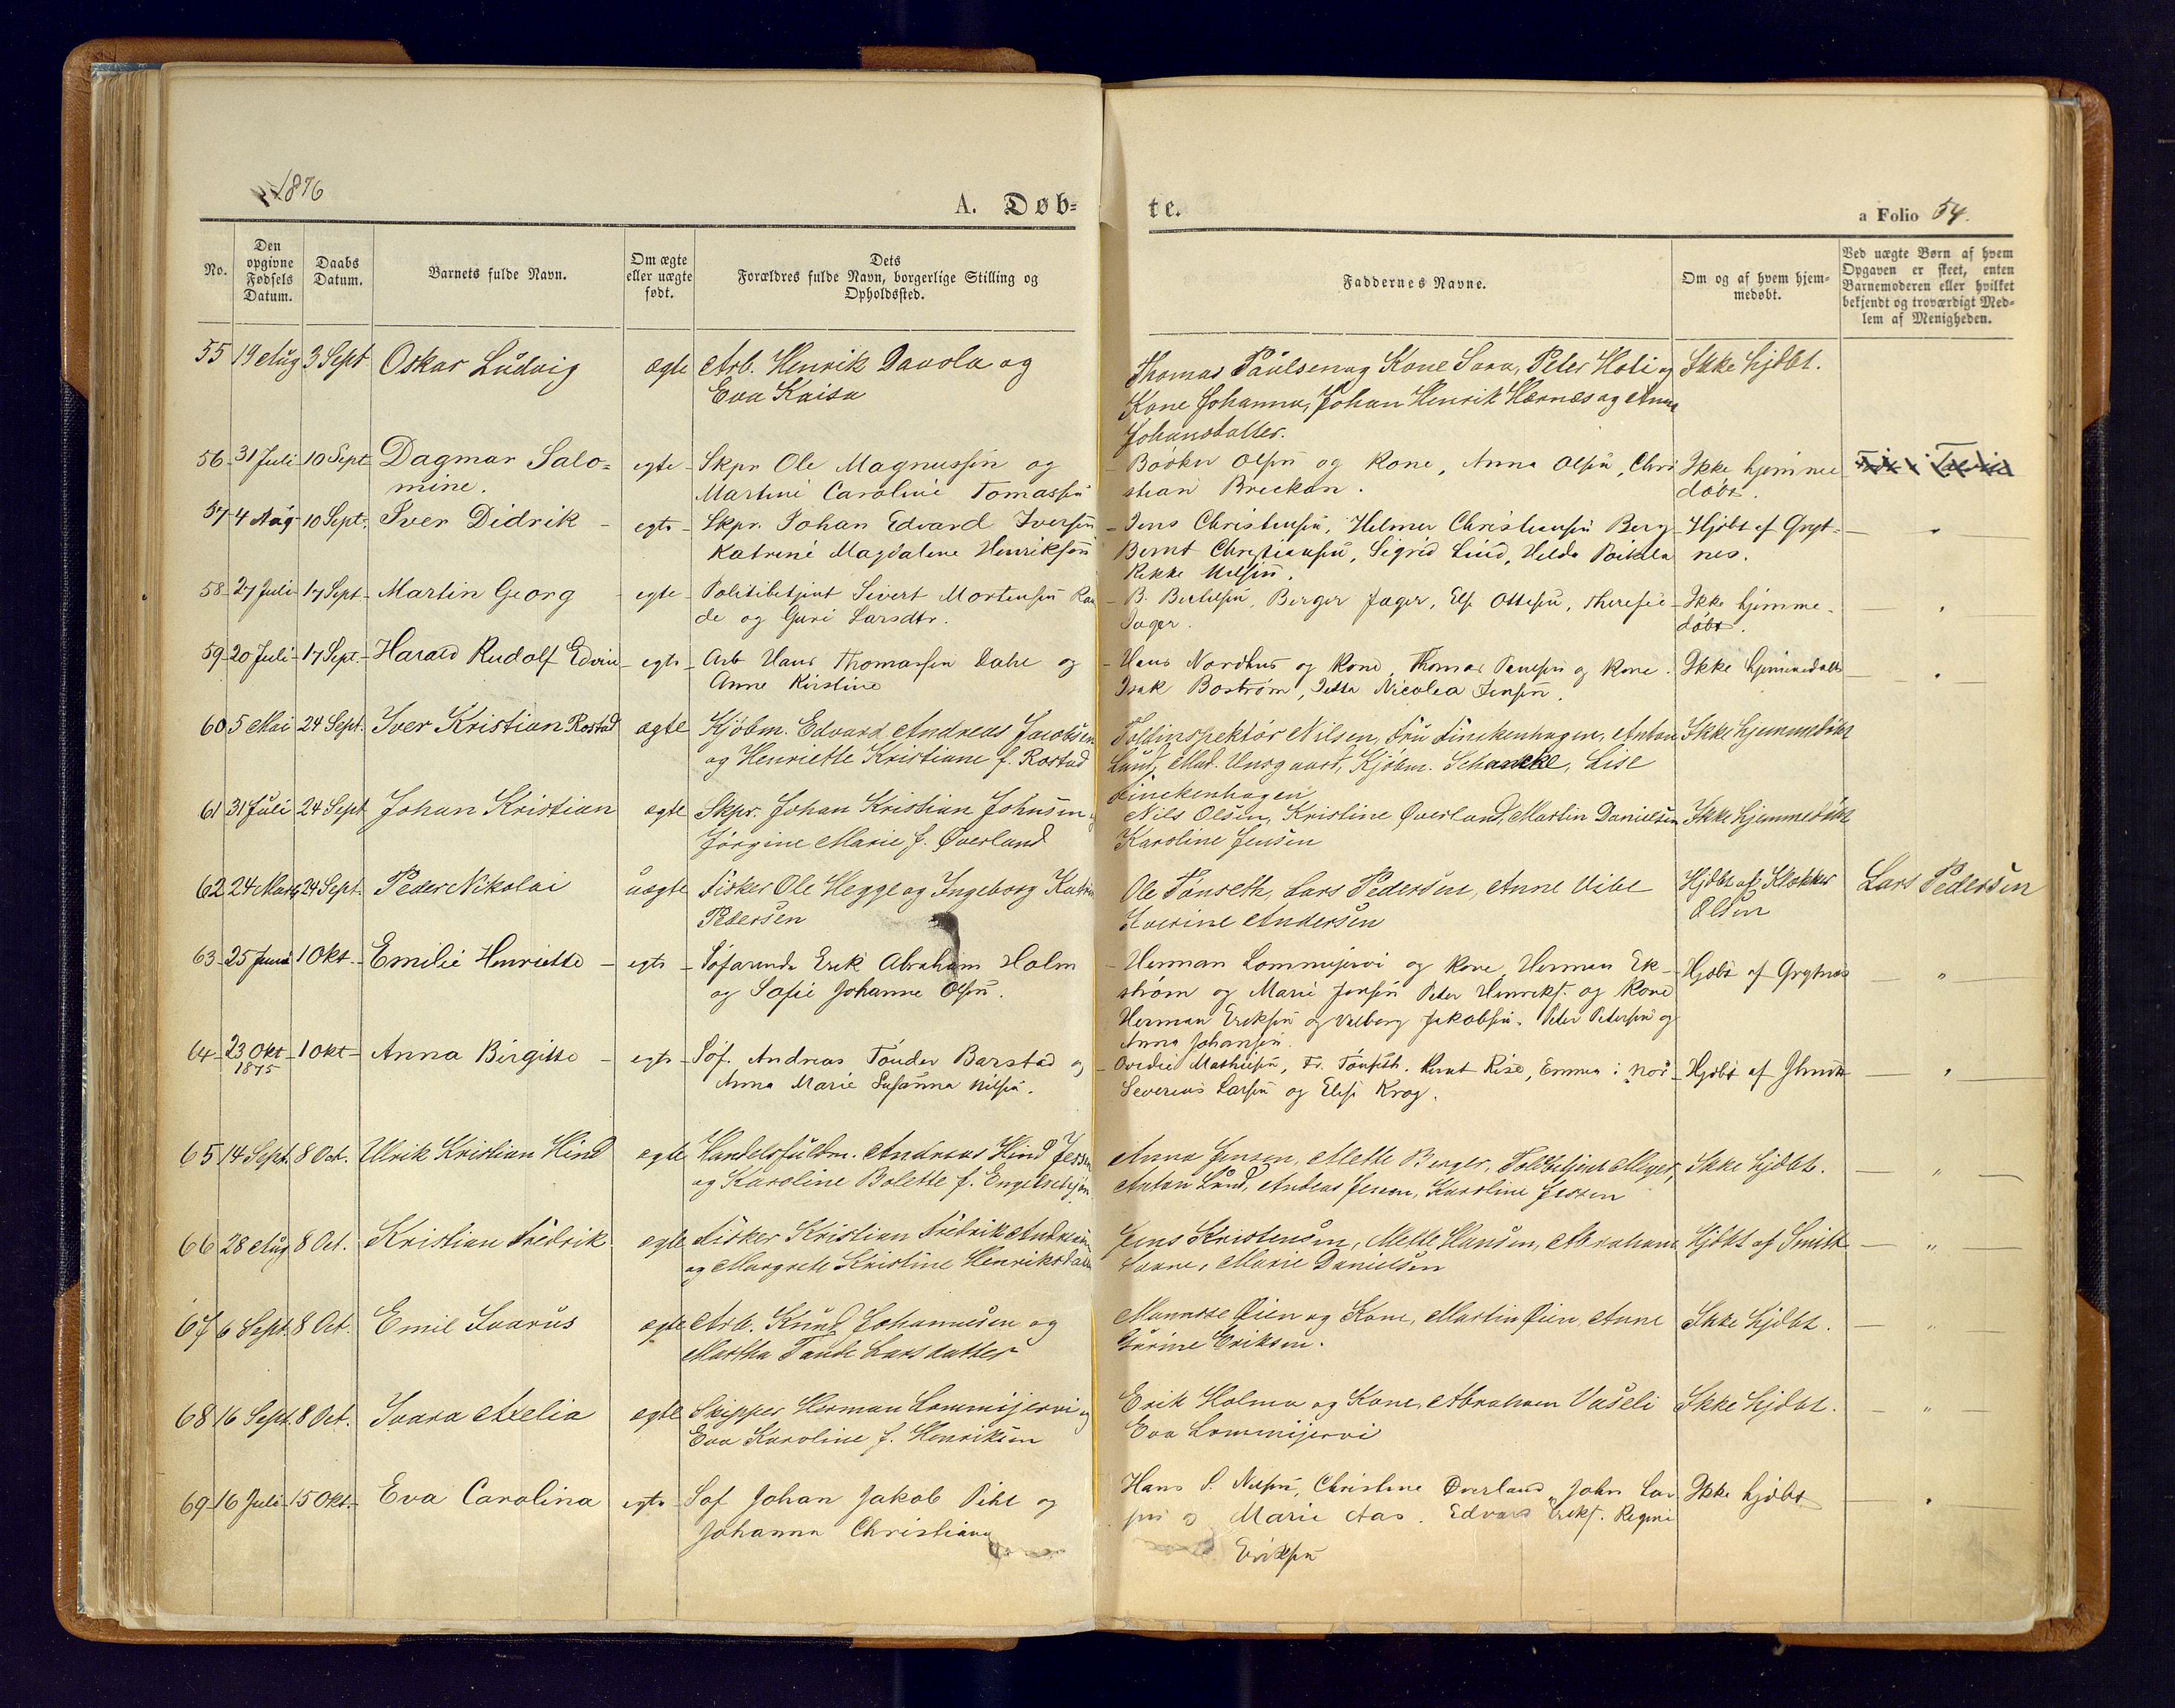 1876
A. Døb=
te.
a Folio 54.
No.
Den opgivne Fødsels Datum.
Daabs Datum.
Barnets fulde Navn.
Om ægte eller uægte født.
Dets Forældres fulde Navn, borgerlige Stilling og Opholdssted.
Faddernes Navne.
Om og af hvem hjem-medøbt.
Ved uægte Børn af hvem Opgaven er skeet, enten Barnemoderen eller hvilket bekjendt og troværdigt Med-lem af Menigheden.
55 19 Aug 3 Sept Oskar Ludvig ægte Arb. Henrik Davola og Thomas Paulsen og Kone Sara, Peter Hoti og Ikke hjdbt.
Eva Kaisa Kone Johanna, Johan Henrik Hernæs og Anna
Johansdatter.
56 31 Juli 10 Sept Dagmar Salo= egte Skpr Ole Magnussen og Olsen og Kone, Anna Olsen, Chri Ikke hjemme
mine. Martine Caroline Tomassen stian Breckan. døbt.
57 4 Aug 10 Sept. Iver Didrik egte Skpr. Johan Edvard Iversen Jens Christensen, Helmer Christensen Berg Hjdbt af Gryt=
Katrine Magdalene Henriksen Bernt Christiansen, Sigrid Lind, Helda nes.
Rikke Nilsen.
58 27 Juli 17 Sept. Martin Georg egte Politibetjent Sivert Mortensen Ran B. Bertelsen, Berger Jæger, Else Ottesen, Therese Ikke hjemme
de og Guri Larsdtr. Jæger. døbt.
59 20 Juli 17 Sept. Harald Rudolf Edvin egte Arb Hans Thomassen Dahl og Hans Nordhus og Kone, Thomas Paulsen og Kone. Ikke hjemmedøbt
Anne Kirstine Isak Boström, Jetta Nicolea Jensen.
60 5 Mai 24 Sept. Iver Kristian Rostad ægte Kjöbm. Edvard Andreas Jacobsen Toldinspektör Nilsen, Fru Finckenhagen, Anton Ikke hjemmedöbt
og Henriette Kristiane f. Rostad Lund, Mad. Unsgaard, Kjöbm. Schancke, Lise
Finckenhagen
61 31 Juli 24 Sept Johan Kristian ægte Skpr. Johan Kristian Johnsen og Nils Olsen, Kristine Øverland, Martin Danielsen Ikke hjemmedöbt
Jörgine Marie f. Øverland Karoline Jensen
62 24 Marts 24 Sept. Peder Nikolai uægte Fisker Ole Hegge og Ingeborg Katrin Ole Tönseth, Lars Pedersen, Anne Vibe Hjdbt af Klokker Lars Pedersen
Pedersen Andersen Olsen
63 25 Juni 1 Okt. Emilie Henriette egte Søfarende Erik Abraham Holm Herman Lommijervi og Kone, Herman Ek- Hjdbt af Grytnes
og Sofie Johanne Olsen. strøm og Marie Jensen Peter Henriks. og Kone
Herman Eriksen og Valborg Jakobsen. Peter Petersen og
Anna Johansen.
64 23 Okt 1875 1 Okt Anna Birgitte egte Søf. Andreas Tönder Barstad og Ovedie Mathisen, Fr. Tönseth. Bernt Rise, Emma Hjdbt af
Anna Marie Susanna Nilsen. Severius Larsen og Elise Krog.
65 14 Sept. 8 Oct. Ulrik Kristian Hind ægte Handelsfuldm. Andreas Hind Jessen Anna Jensen, Mette Berger, Toldbetjent Meyer, Ikke hjdbt.
og Karoline Bolette f. Engelschjön Anton Lund, Andreas Jensen, Karoline Jessen
66 28 Aug 8 Oct. Kristian Fredrik ægte Fisker Kristian Fredrik Andreassen Jens Kristensen, Mette Hansen, Abraham Hjdbt af Smith
og Margrete Kristine Henriksdatter Marie Danielsen
67 6 Sept. 8 Oct. Emil Ivarus ægte Arb. Knud Johannesen og Øien og Kone, Martin Øien, Anne Ikke hjdbt.
Martha Larsdatter Gurine Eriksen.
68 16 Sept. 8 Oct. Ivara Axelia ægte Skipper Herman Lommijervi og Erik Holma og Kone, Abraham Vaseli Ikke hjdbt.
Eva Karoline f. Henriksen Eva Lommijervi
69 16 Juli 15 Okt. Eva Carolina egte Søf Johan Jakob Pihl og Hans P. Nilsen, Christine Øverland, John Lar Ikke hjdbt
Johanna Christiana sen og Marie Aas. Edvard Eriks. Regine
Eriksen